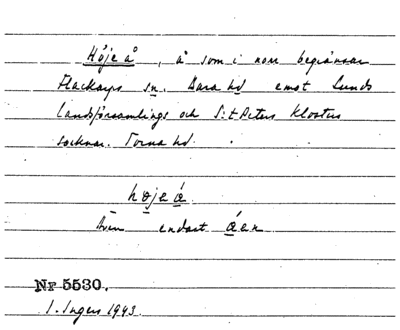 Höje å, å som i norr begränsar
Flackarps sn. Bara hd emot Lunds
landsförsamlings och S:t Peters Klosters
socknar. Torna hd.
høje å
Även endast åen
Nr 5530.
I. Ingers 1943.